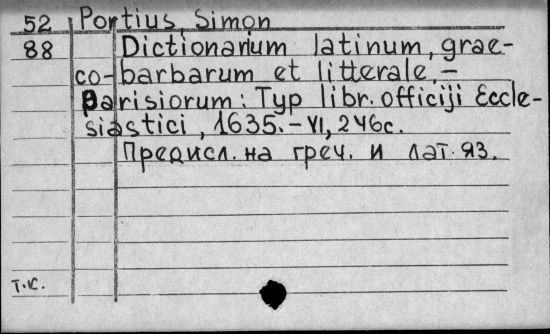 52 Portius Simon
88 Dictionarium latinum, grae-
co-barbarum et litterale,-
Parisiorum: Typ libr. officiji Eccle-
siastici, 1635.-VI, 246c.
Предисл. на греч. и лат. яз.
т.к.